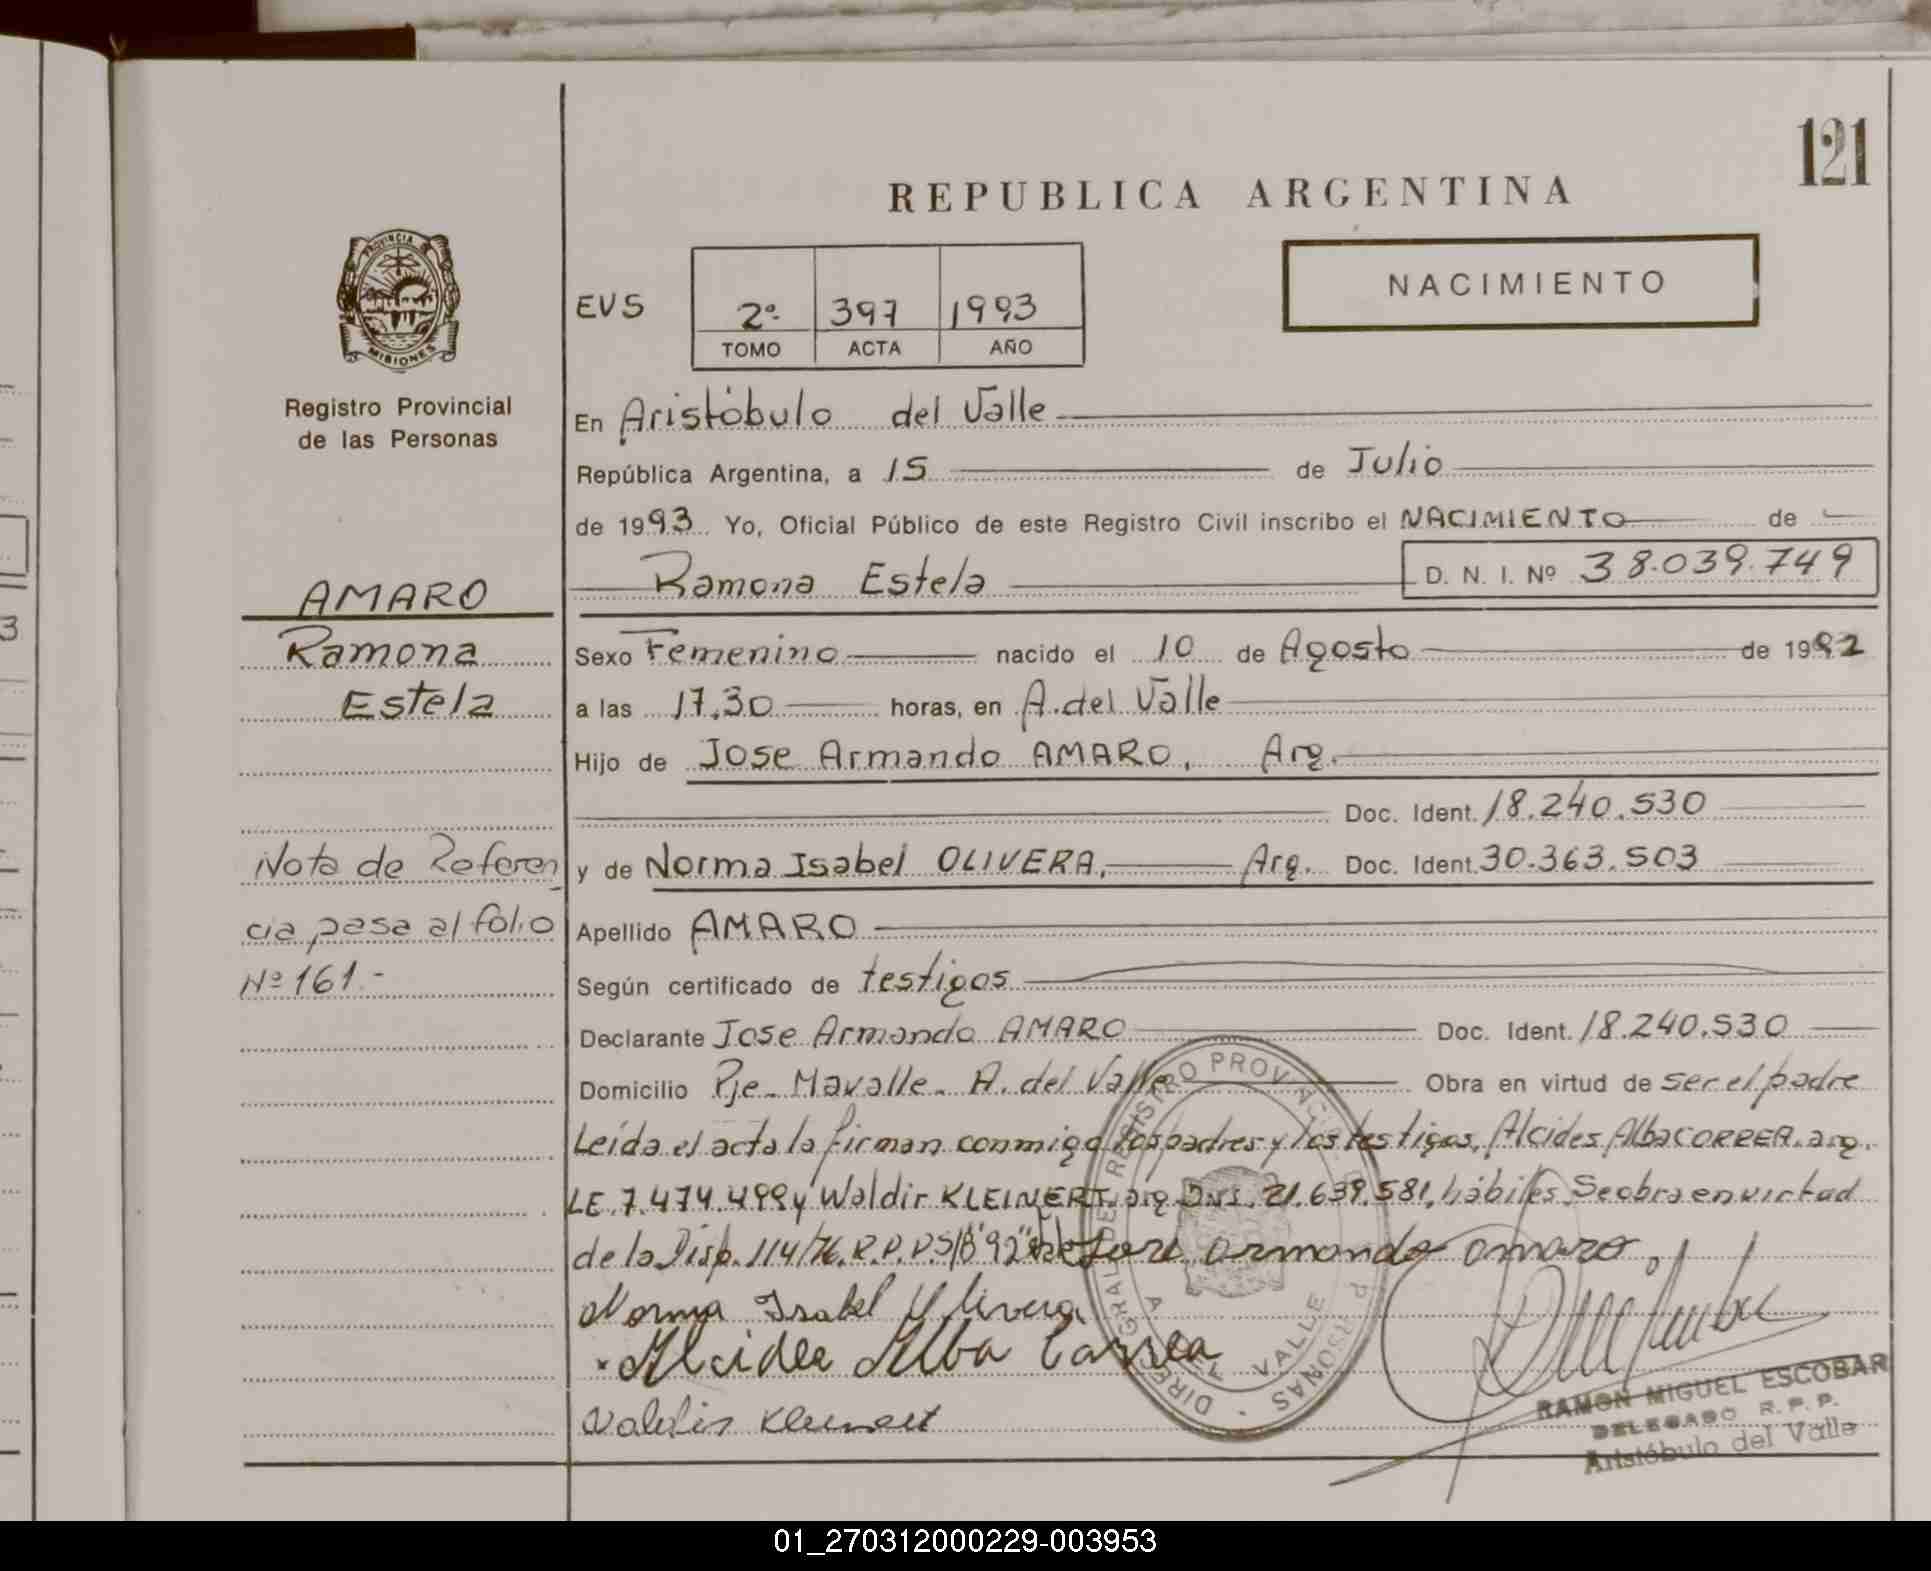 121
REPUBLICA ARGENTINA
PROVINCIA DE
MISIONES
Registro Provincial
de las Personas
NACIMIENTO
EVS
2º 397 1993
TOMO ACTA AÑO
En Aristóbulo del Valle
República Argentina, a 15 de Julio
de 1993 Yo, Oficial Público de este Registro Civil inscribo el NACIMIENTO de
Ramona Estela D. N. I. Nº 38.039.749
AMARO
Ramona
Estela
Sexo Femenino nacido el 10 de Agosto de 1992
a las 17.30 horas, en A. del Valle
Hijo de Jose Armando AMARO, Arg.
Doc. Ident. 18.240.530
y de Norma Isabel OLIVERA, Arg. Doc. Ident. 30.363.503
Nota de Referen
cia pasa al folio
Nº 161.-
Apellido AMARO
Según certificado de testigos
Declarante Jose Armando AMARO Doc. Ident. 18.240.530
Domicilio Pje. Mavalle. A. del Valle Obra en virtud de ser el padre
Leída el acta la firman conmigo los padres y los testigos, Alcides Alba CORREA. arg.
LE. 7.474.499 y Waldir KLEINERT, arg. D.N.I. 21.639.581, hábiles. Se obra en virtud
de la Disp. 114/76. R.P.P. S/B "92" Jose armando amaro.
Norma Isabel Olivera
Alcides Alba Correa
Valdir Kleinert
DIRECCION GRAL DEL REGISTRO PROVINCIAL DE LAS PERSONAS
A. DEL VALLE
RAMON MIGUEL ESCOBAR
DELEGADO R.P.P.
Aristóbulo del Valle
3
01_270312000229-003953